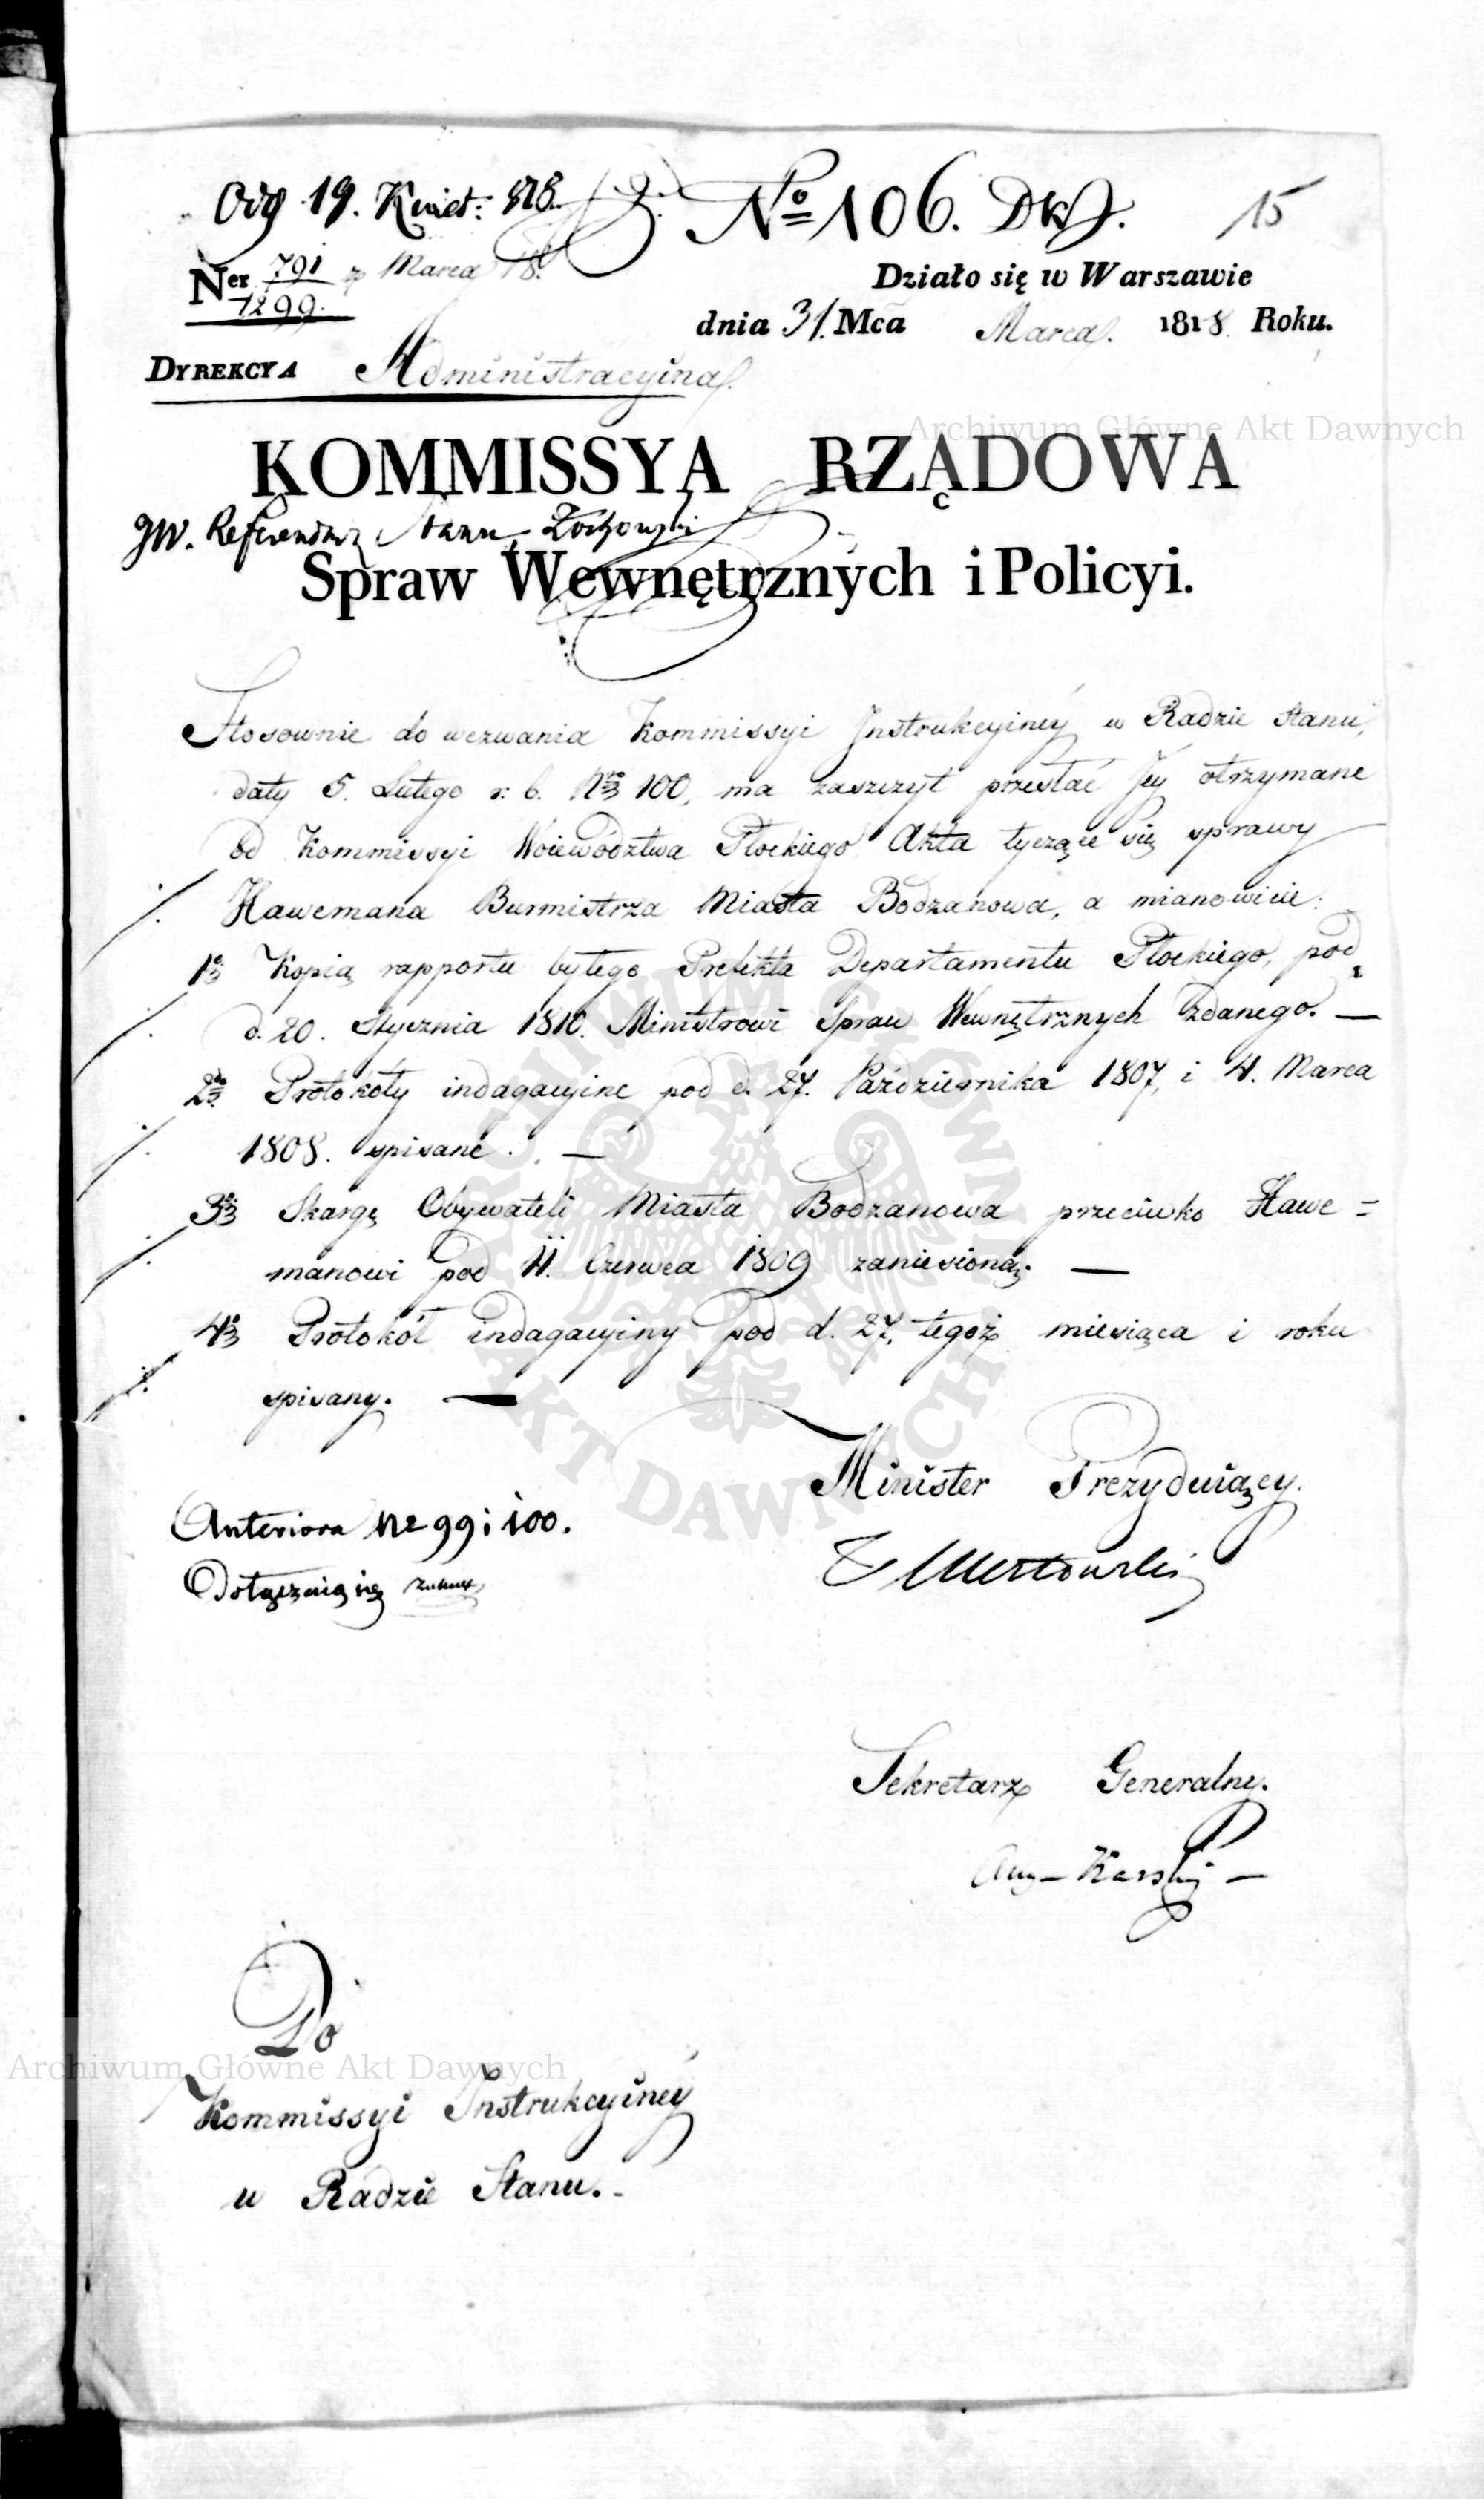 Odg 19. Kwiet: 818.
No 106. DKJ.
15
Ner 791 z Marca 18.
1299.
Działo się w Warszawie
dnia 31. Mca Marca. 1818. Roku.
DYREKCYA Administracyina.
KOMMISSYA RZĄDOWA
JW. Referendarz Stanu
Spraw Wewnętrznych i Policyi.
Stosownie do wezwania Kommissyi Instrukcyiney w Radzie Stanu,
daty 5. Lutego r: b. Nro 100, ma zaszczyt przesłać Jey otrzymane
od Kommissyi Woiewództwa Płockiego Akta tyczące się sprawy
Hawemana Burmistrza Miasta Bodzanowa, a mianowicie:
1o Kopią rapportu byłego Prefekta Departamentu Płockiego, pod
d. 20. Stycznia 1810. Ministrowi Spraw Wewnętrznych zdanego. —
2do Protokóły indagacyine pod d. 27. Października 1807, i 4. Marca
1808. spisane. —
3o Skargę Obywateli Miasta Bodzanowa przeciwko Hawe=
manowi pod 11. Czerwca 1809 zaniesioną. —
4o Protokół indagacyiny pod d. 27. tegoż miesiąca i roku
spisany. —
Minister Prezyduiący.
Anteriora No 99 i 100.
T Mostowski
Dołączaią się
Sekretarz Generalny.
Aug Karski
Do
Kommissyi Instrukcyiney
w Radzie Stanu.
Archiwum Główne Akt Dawnych
Archiwum Główne Akt Dawnych
ARCHIWUM GŁÓWNE AKT DAWNYCH